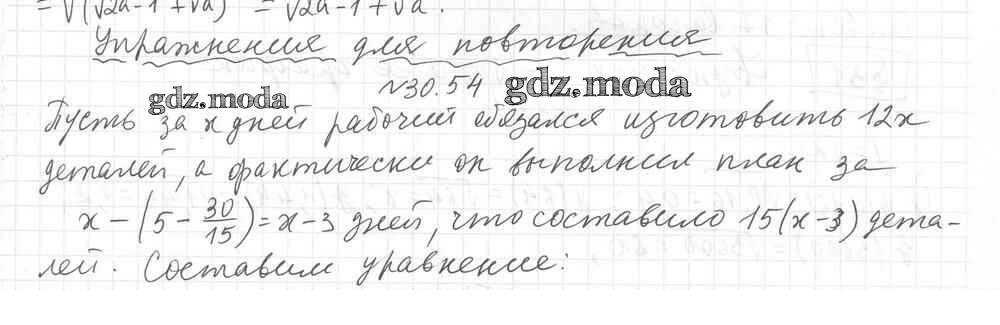 = √(√2a-1 + √a)² = √2a-1 + √a.
Упражнения для повторения
№30.54 gdz.moda
gdz.moda
Пусть за x дней рабочий обязался изготовить 12x
деталей, а фактически он выполнил план за
x - (5 - 30/15) = x - 3 дней, что составило 15(x-3) дета-
лей. Составим уравнение: